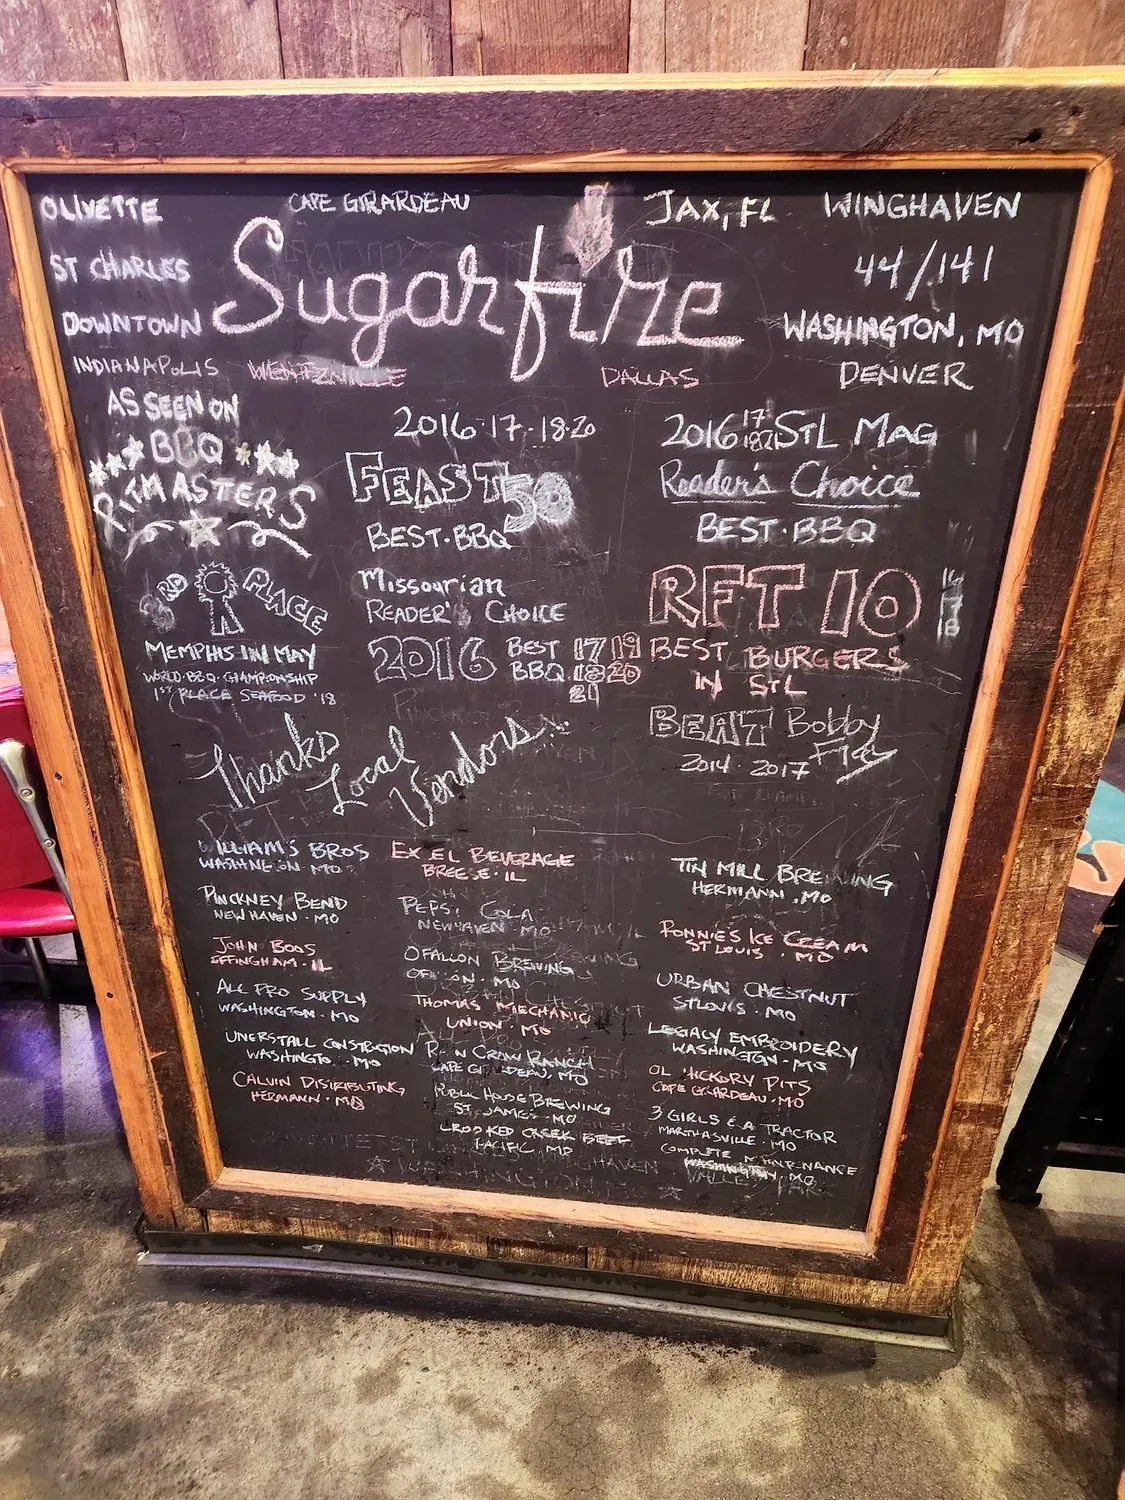 OLIVETTE
CAPE GIRARDEAU
JAX, FL
WINGHAVEN
ST CHARLES
Sugarfire
44/141
DOWNTOWN
WASHINGTON, MO
INDIANAPOLIS
WENTZVILLE
DALLAS
DENVER
AS SEEN ON
BBQ
PITMASTERS
3RD PLACE
MEMPHIS IN MAY
WORLD BBQ CHAMPIONSHIP
1ST PLACE SEAFOOD '18
2016·17·18·20
FEAST 50
BEST·BBQ
Missourian
READER'S CHOICE
2016 BEST 17 19
BBQ 18 20
21
2016 17 STL MAG
Reader's Choice
BEST·BBQ
RFT 10 16 17 18
BEST BURGERS
IN STL
BEAT Bobby
Flay
2014 · 2017
Thanks
Local
Vendors
WILLIAM'S BROS
WASHINGTON · MO
PINCKNEY BEND
NEW HAVEN · MO
JOHN BOOS
EFFINGHAM · IL
ALL PRO SUPPLY
WASHINGTON · MO
UNERSTALL CONSTRUCTION
WASHINGTON · MO
CALVIN DISTRIBUTING
HERMANN · MO
EXCEL BEVERAGE
BREESE · IL
PEPSI COLA
NEWHAVEN MO
OFALLON BREWING
OFALLON · MO
THOMAS MECHANIC
UNION · MO
CROW RANCH
CAPE GIRARDEAU, MO
PUBLIC HOUSE BREWING
ST. JAMES · MO
CROOKED CREEK BEEF
PACIFIC, MO
TIN MILL BREWING
HERMANN, MO
RONNIE'S ICE CREAM
ST LOUIS · MO
URBAN CHESTNUT
ST LOUIS · MO
LEGACY EMBROIDERY
WASHINGTON · MO
OL HICKORY PITS
CAPE GIRARDEAU · MO
3 GIRLS & A TRACTOR
MARTHASVILLE · MO
COMPLETE MAINTENANCE
WASHINGTON, MO